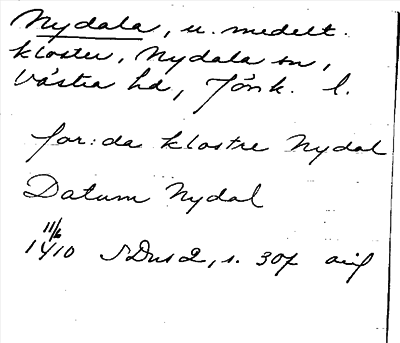 Nydala, u. medelt.
kloster, Nydala sn,
Västra hd, Jönk. l.
for:da klostre Nydal
Datum Nydal
11/6
1410 SDns 2, s. 307 avil